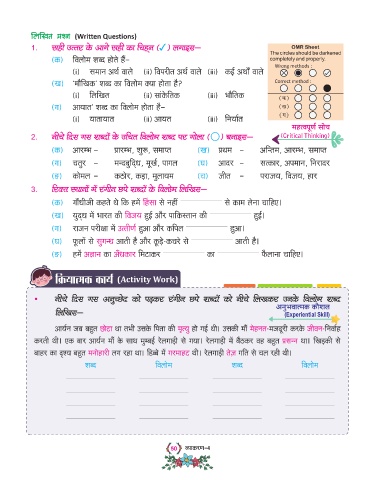 लिखित प्रश्न (Written Questions)
1. सही उत्तर के आगे सही का चिह्न (✓) लगाइए–
OMR Sheet
The circles should be darkened completely and properly.
Wrong methods :
Correct method :
(क) विलोम शब्द होते हैं–
(i) समान अर्थ वाले (ii) विपरीत अर्थ वाले (iii) कई अर्थों वाले
(ख) 'मौखिक' शब्द का विलोम क्या होता है?
(i) लिखित (ii) सांकेतिक (iii) भौतिक
(ग) आयात' शब्द का विलोम होता है–
(i) यातायात (ii) आयत (iii) निर्यात
(क)
(ख)
(ग)
महत्वपूर्ण सोच
(Critical Thinking)
2. नीचे दिए गए शब्दों के उचित विलोम शब्द पर गोला ( ) बनाइए–
(क) आरम्भ – प्रारम्भ, शुरू, समाप्त (ख) प्रथम – अन्तिम, आरम्भ, समाप्त
(ग) चतुर – मन्दबुद्धि, मूर्ख, पागल (घ) आदर – सत्कार, अपमान, निरादर
(ङ) कोमल – कठोर, कड़ा, मुलायम (च) जीत – पराजय, विजय, हार
3. रिक्त स्थानों में रंगीन छपे शब्दों के विलोम लिखिए–
(क) गाँधीजी कहते थे कि हमें हिंसा से नहीं से काम लेना चाहिए।
(ख) युद्ध में भारत की विजय हुई और पाकिस्तान की हुई।
(ग) राजन परीक्षा में उत्तीर्ण हुआ और कपिल हुआ।
(घ) फूलों से सुगन्ध आती है और कूड़े-कचरे से आती है।
(ङ) हमें अज्ञान का अंधकार मिटाकर का फैलाना चाहिए।
क्रियात्मक कार्य (Activity Work)
• नीचे दिए गए अनुच्छेद को पढ़कर रंगीन छपे शब्दों को नीचे लिखकर उनके विलोम शब्द
लिखिए–
अनुभवात्मक कौशल
(Experiential Skill)
आर्यन जब बहुत छोटा था तभी उसके पिता की मृत्यु हो गई थी। उसकी माँ मेहनत-मजदूरी करके जीवन-निर्वाह
करती थी। एक बार आर्यन माँ के साथ मुम्बई रेलगाड़ी से गया। रेलगाड़ी में बैठकर वह बहुत प्रसन्न था। खिड़की से
बाहर का दृश्य बहुत मनोहारी लग रहा था। डिब्बे में गरमाहट थी। रेलगाड़ी तेज गति से चल रही थी।
शब्द विलोम शब्द विलोम
50 व्याकरण–4